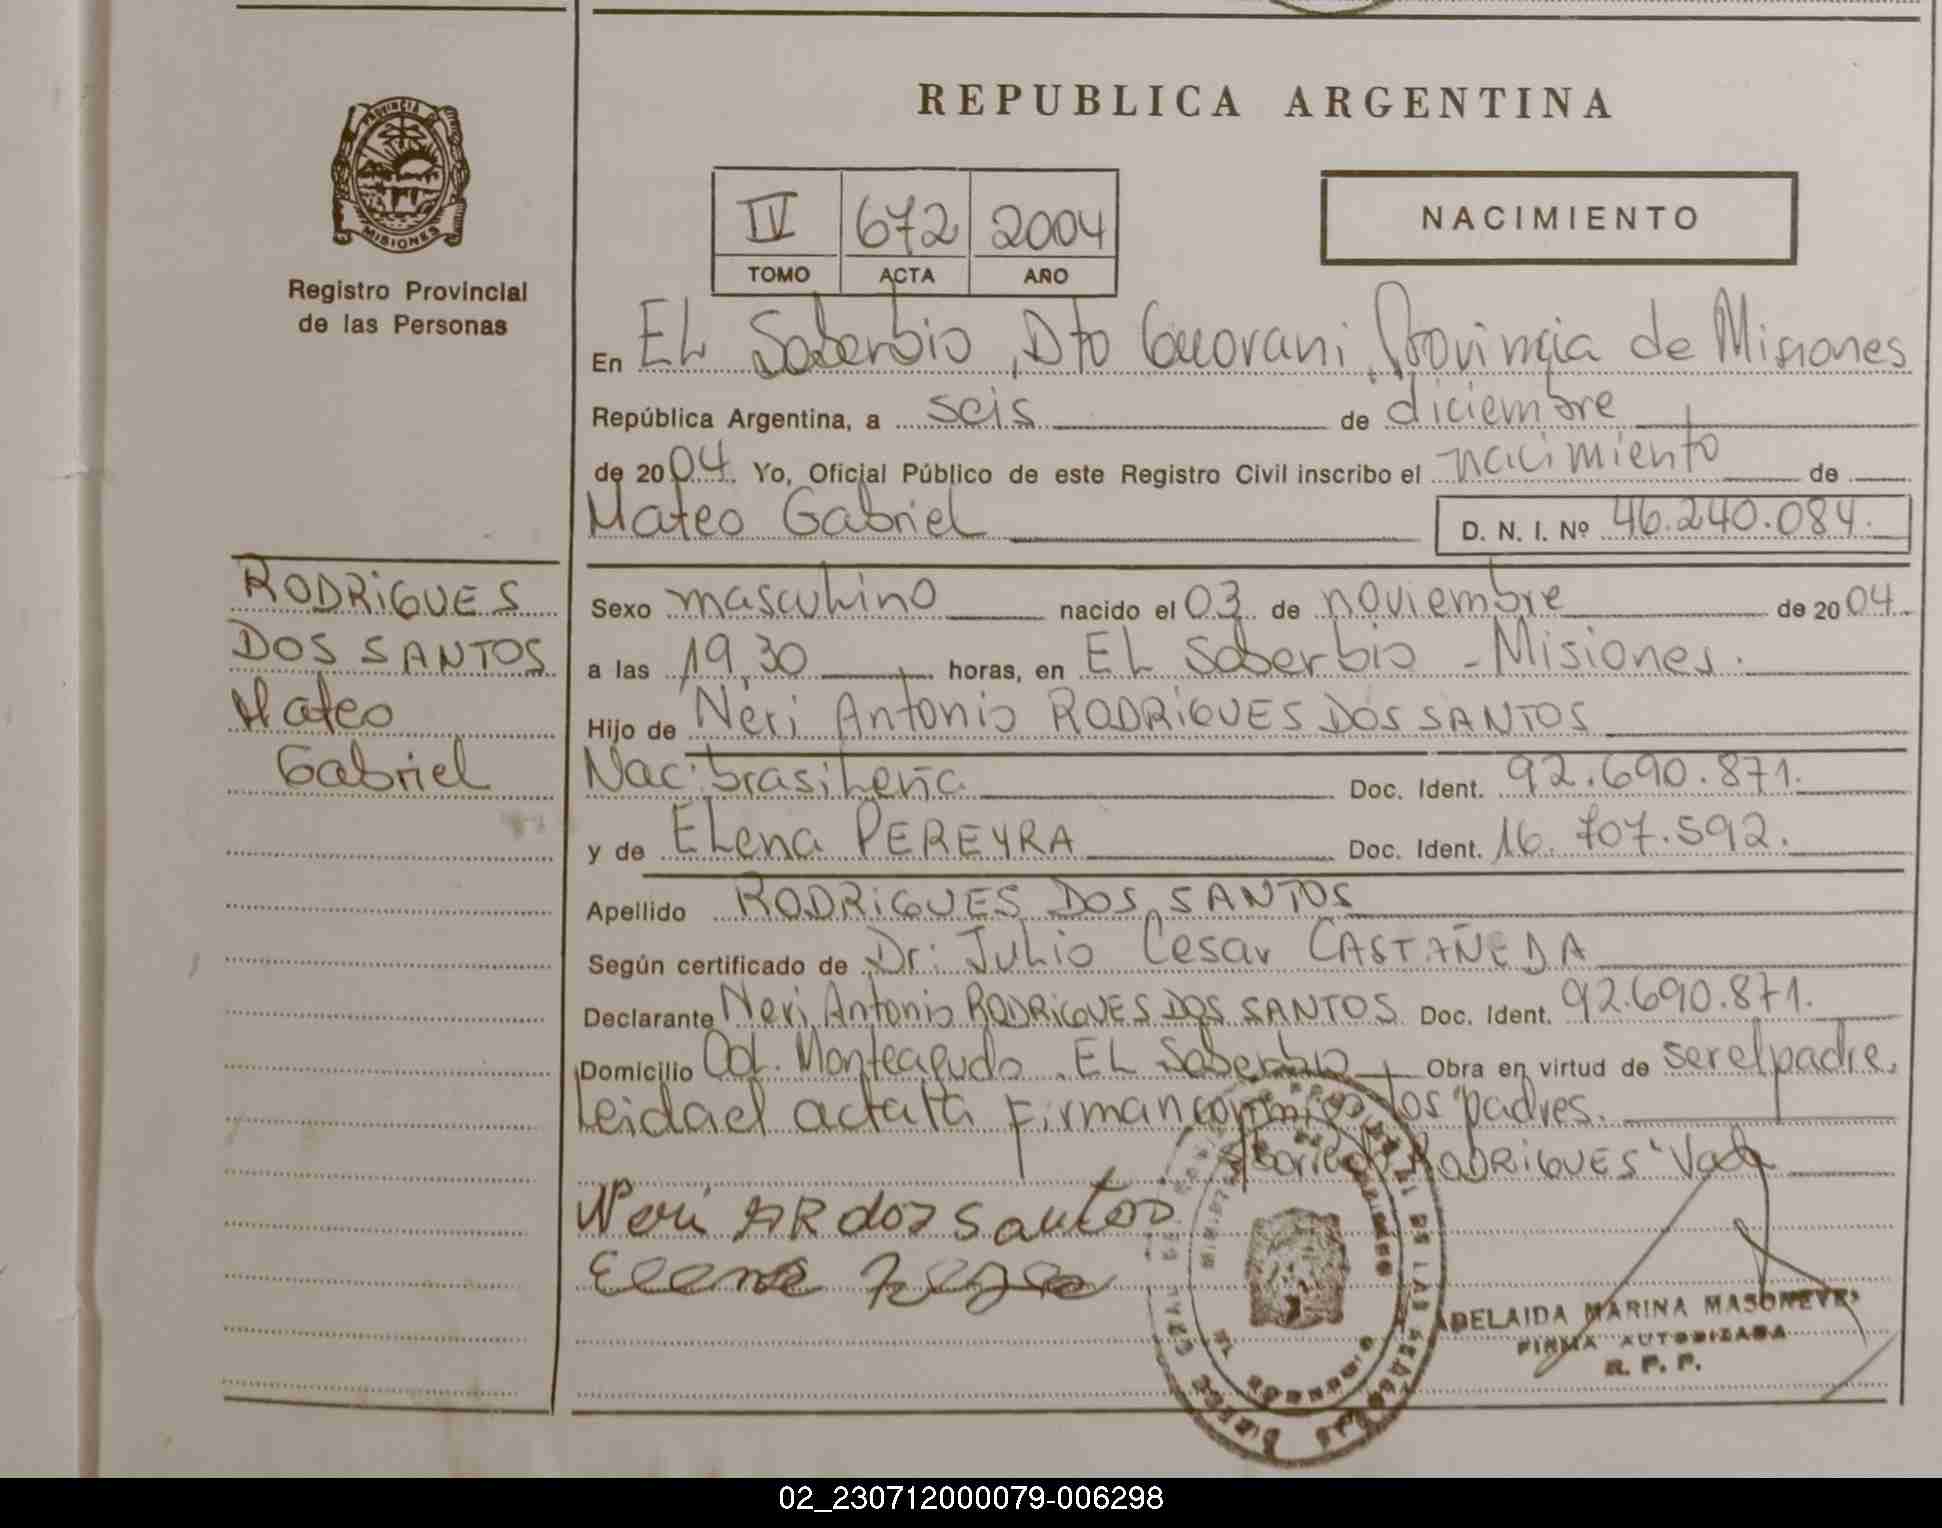 REPUBLICA ARGENTINA
PROVINCIA DE
MISIONES
Registro Provincial
de las Personas
IV 672 2004
TOMO ACTA AÑO
NACIMIENTO
En EL Soberbio, Dto Guarani, Provincia de Misiones
República Argentina, a seis de diciembre
de 2004. Yo, Oficial Público de este Registro Civil inscribo el nacimiento de
Mateo Gabriel D. N. I. Nº 46.240.084.
RODRIGUES
DOS SANTOS
Mateo
Gabriel
Sexo masculino nacido el 03 de noviembre de 2004
a las 19,30 horas, en EL Soberbio - Misiones.
Hijo de Neri Antonio RODRIGUES DOS SANTOS
Nac: brasileña Doc. Ident. 92.690.871.
y de ELena PEREYRA Doc. Ident. 16.707.592.
Apellido RODRIGUES DOS SANTOS
Según certificado de Dr: Julio Cesar CASTAÑEDA
Declarante Neri Antonio RODRIGUES DOS SANTOS Doc. Ident. 92.690.871.
Domicilio Col. Monteagudo. EL Soberbio Obra en virtud de ser el padre.
Leida el acta la firman conmigo los padres.
RODRIGUES" Vale
Neri AR dos Santos
Elena
ADELAIDA MARINA
FIRMA AUTORIZADA
R. P. P.
02_230712000079-006298